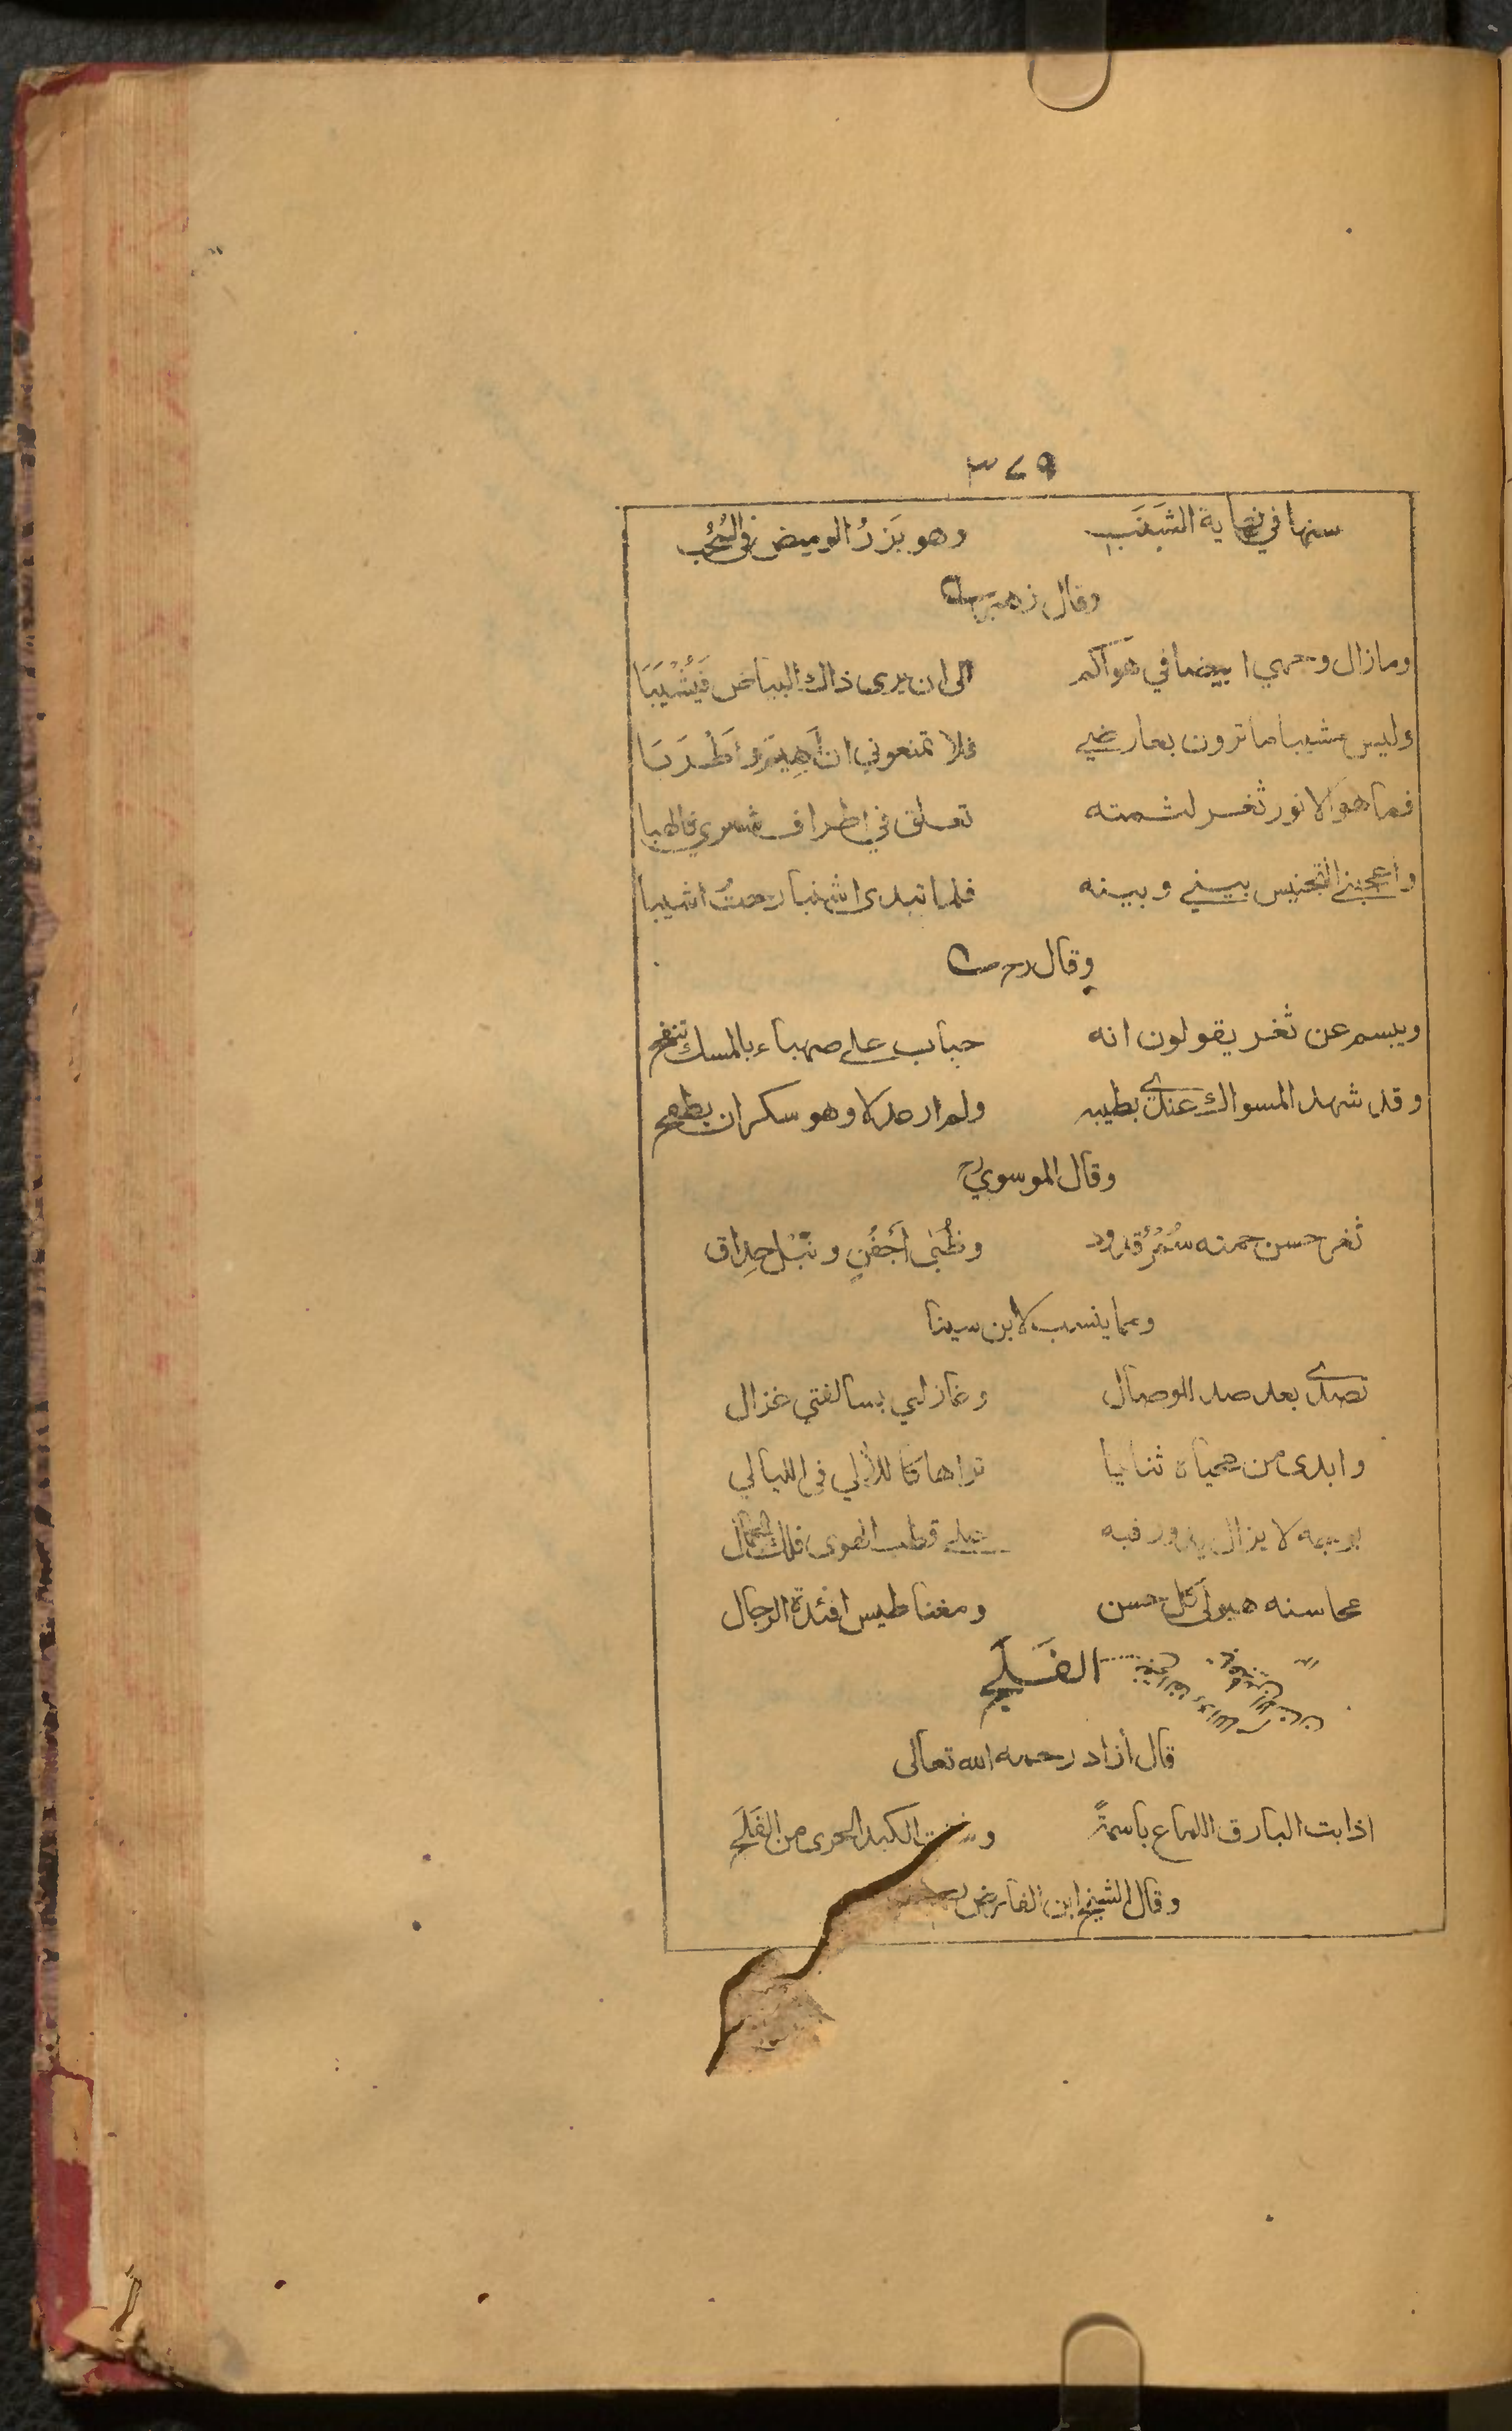 ٣٤٩
سنها في نهاية الشَنَبِ وهو بَزَرُ الوميض في السُحُب
وقال زهير
ومازال وجهي ابيضا في هواكم الى ان يرى ذاك البياض فَيُشْيَبَا
وليس مشيبا ما ترون بعارضي فلا تمنعوني ان اَهِيمَ واَطْرَبَا
فما هو الا نور ثغر لثمته تعلق في اطراف شعري فالهبا
واعجبني التجنيس بيني وبينه فلما تبدى اشنبا رحتُ اشيبا
وقال رح
ويبسم عن ثغر يقولون انه حباب على صهباء بالمسك تنفح
وقد شهد المسواك عندي بطيبه ولم ار عدلا وهو سكران يطفح
وقال الموسوي رح
ثغر حسن حمته سُمْرُ قدود وظُبَى اَجْفُنٍ ونَبْل حِداق
ومما ينسب لابن سينا
تصدى بعد صد للوصال وغازلي بسالفتي غزال
وابدى من محياه ثنايا تراها كاللألي في الليالي
بوجهه لا يزال يدور فيه على قطب الهوى فلك الجمال
محاسنه هيولى كل حسن ومغناطيس افئدة الرجال
الفَلَج
قال أزاد رحمه الله تعالى
اذابت البارق اللماع باسمةً الكبد الحرى من الفَلَج
وقال الشيخ ابن الفارض